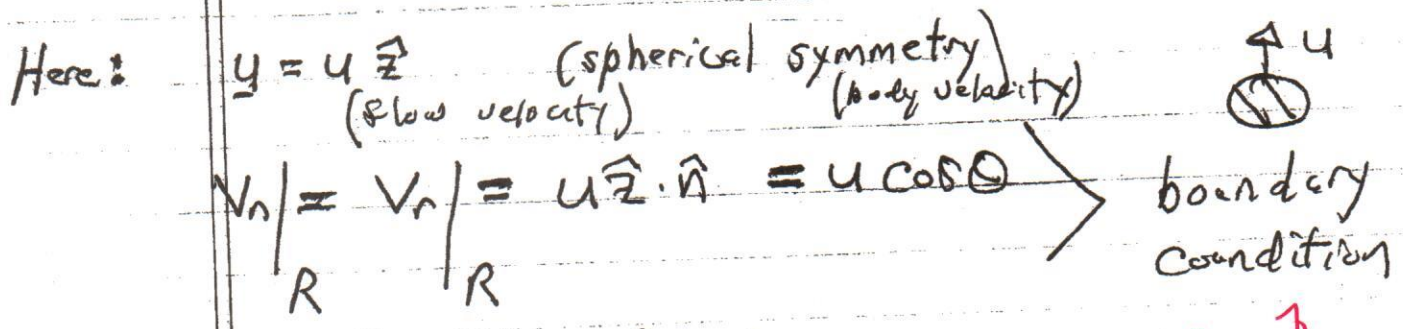 Here: u = u ẑ (spherical symmetry)
(flow velocity) (body velocity)
u
Vn|R = Vr|R = uẑ·n̂ = u cosθ
boundary
coundition